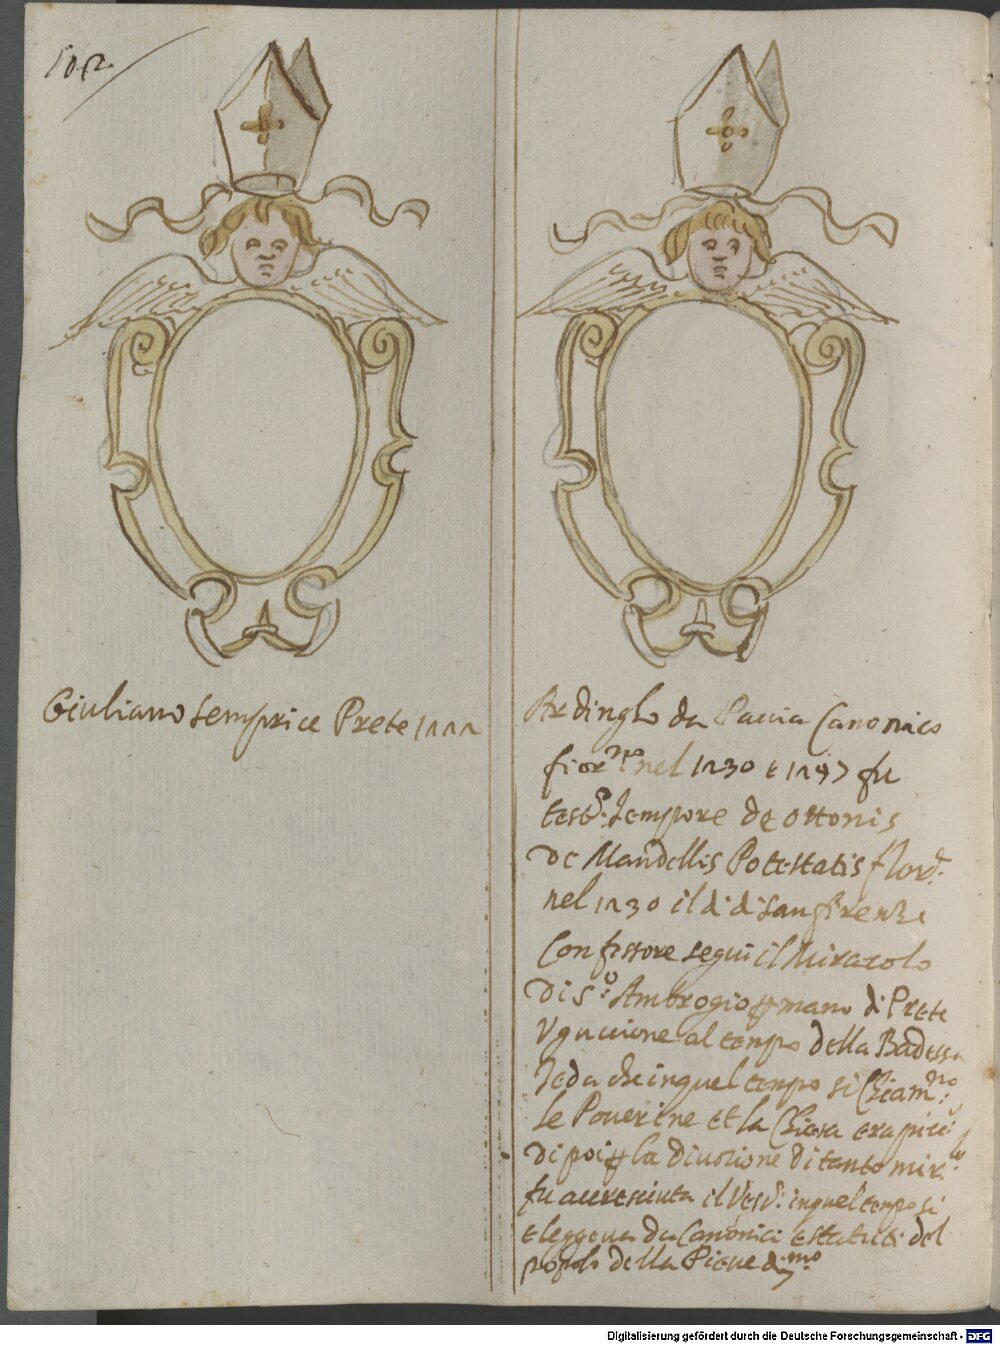 102.
Giuliano semprice Prete 1222
Ardingho da Pauia Canonico
fior.no nel 1230 e 1247 fu
Tempore de ottonis
de Mandellis Potestatis flor.
nel 1230 il di di san firenze
Confessore seguì il Miracolo
di S.o Ambrogio p mano di Prete
Uguccione al tempo della Badessa
che in quel tempo si Chiam.no
le Pouerine et la Chiesa era picc.
di poi p la diuotione di tanto mir.lo
fu accresciuta il Vesc. in quel tempo si
eleggeua da Canonici e del
popolo della Pieue
Digitalisierung gefördert durch die Deutsche Forschungsgemeinschaft - DFG